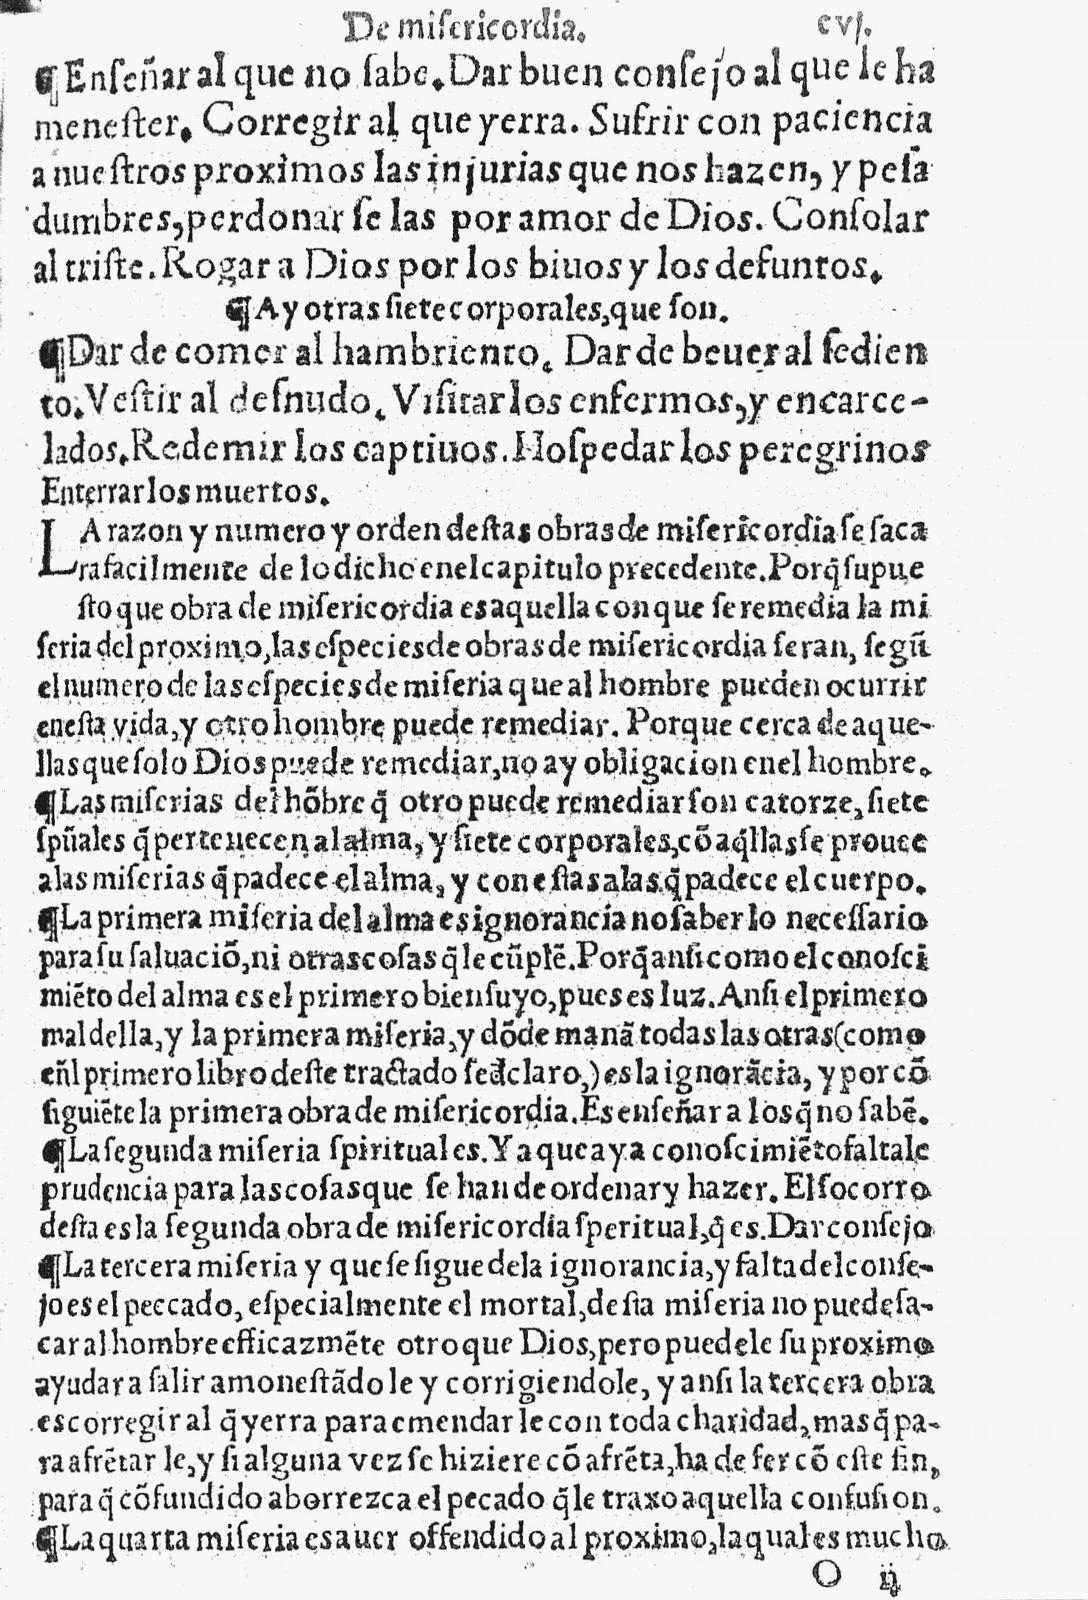 De miſericordia. cvj.
¶ Enſeñar al que no ſabe. Dar buen conſejo al que le ha
meneſter. Corregir al que yerra. Sufrir con paciencia
a nueſtros proximos las injurias que nos hazen, y peſa
dumbres, perdonar ſe las por amor de Dios. Conſolar
al triſte. Rogar a Dios por los biuos y los defuntos.
¶ Ay otras ſiete corporales, que ſon.
¶ Dar de comer al hambriento. Dar de beuer al ſedien
to. Veſtir al deſnudo. Viſitar los enfermos, y encarce-
lados. Redemir los captiuos. Hoſpedar los peregrinos
Enterrar los muertos.
LA razon y numero y orden deſtas obras de miſericordia ſe ſaca
ra facilmente de lo dicho enel capitulo precedente. Porq̃ ſupue
ſto que obra de miſericordia es aquella con que ſe remedia la mi
ſeria del proximo, las eſpecies de obras de miſericordia ſeran, ſegũ
el numero de las eſpecies de miſeria que al hombre pueden ocurrir
eneſta vida, y otro hombre puede remediar. Porque cerca de aque-
llas que ſolo Dios puede remediar, no ay obligacion enel hombre.
¶ Las miſerias del hõbre q̃ otro puede remediar ſon catorze, ſiete
ſpũales q̃ pertenecen al alma, y ſiete corporales, cõ aq̃llas ſe prouee
a las miſerias q̃ padece el alma, y con eſtas a las q̃ padece el cuerpo.
¶ La primera miſeria del alma es ignorancia no ſaber lo neceſſario
para ſu ſaluaciõ, ni otras coſas q̃ le cũplẽ. Porq̃ anſi como el conoſci
miẽto del alma es el primero bien ſuyo, pues es luz. Anſi el primero
mal della, y la primera miſeria, y dõde manã todas las otras (como
eñl primero libro deſte tractado ſe declaro,) es la ignorãcia, y por cõ
ſiguiẽte la primera obra de miſericordia. Es enſeñar a los q̃ no ſabẽ.
¶ La ſegunda miſeria ſpiritual es. Ya que aya conoſcimiẽto faltale
prudencia para las coſas que ſe han de ordenar y hazer. El ſocorro
deſta es la ſegunda obra de miſericordia ſperitual, q̃ es. Dar conſejo
¶ La tercera miſeria y que ſe ſigue dela ignorancia, y falta del conſe-
jo es el peccado, eſpecialmente el mortal, deſta miſeria no puede ſa-
car al hombre efficazmẽte otro que Dios, pero puedele ſu proximo
ayudar a ſalir amoneſtãdo le y corrigiendole, y anſi la tercera obra
es corregir al q̃ yerra para emendar le con toda charidad, mas q̃ pa-
ra afrẽtar le, y ſi alguna vez ſe hiziere cõ afrẽta, ha de ſer cõ eſte fin,
para q̃ cõfundido aborrezca el pecado q̃ le traxo aquella confuſion.
¶ La quarta miſeria es auer offendido al proximo, la qual es mucho
O ij